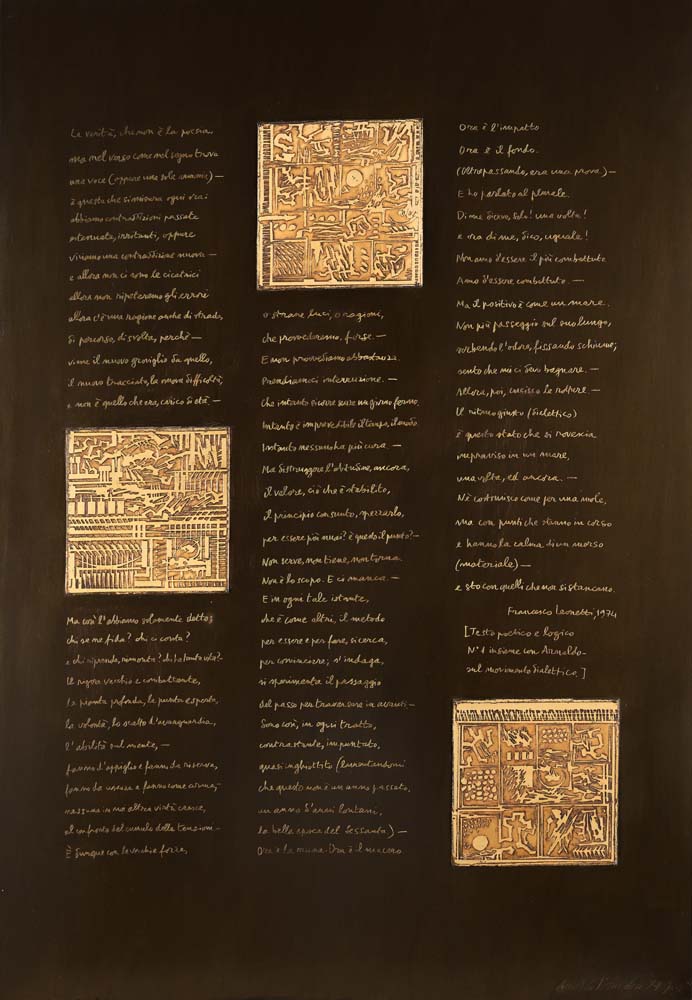 La verità, che non è la poesia,
ma nel verso come nel sogno trova
una voce (oppure una sole
è questa che si misura ogni ora i
abbiamo contraddizioni passate
estenuate, irritanti, oppure
viviamo una contraddizione nuova —
e allora non ci sono le cicatrici
allora non ripeteremo gli errori
allora c'è una ragione anche di strada,
di percorso, di svolta, perché —
viene il nuovo groviglio da quello,
il nuovo tracciato, la nuova difficoltà,
e non è quello che era, carico di età —
Ma così l'abbiamo solamente detto;
chi se ne fida? chi ci conta?
e chi riprende, rimonta?
Il rigore vecchio e combattente,
la pianta profonda, la punta esposta,
la volontà, lo scatto d'avanguardia,
l'abilità sul niente, —
fanno d'appiglio e fanno da riserva,
fanno da
nessuna in ma altra virtù cresce,
al confronto del cumulo delle tensioni —
È dunque con la vecchia forza,
o strane luci, o ragioni,
che provvederemo, forse. —
E non provvediamo abbastanza.
Prendiamoci interruzione. —
Che intanto si corre senza un giorno fermo,
Intanto è imprevedibile il tempo, il modo
Intanto nessuno ha più cura. —
Ma distruggere l'abitudine, ancora,
il valore, ciò che è stabilito,
il principio consunto, spezzarlo,
per essere poi nuovi? è questo il punto? —
Non serve, non tiene, non torna.
Non è lo scopo. E ci manca. —
E in ogni tale istante,
che è come altri, il metodo
per essere e per fare, si cerca,
per cominciare; s'indaga,
si sperimenta il passaggio
del passo per traversare in avanti. —
Sono così, in ogni tratto,
contrastante, impuntato,
quasi inghiottito (lamentandomi
che questo non è un anno passato,
un anno d'eroi lontani,
la bella epoca del Sessanta) —
Ora è la muna. Ora è il macero.
Ora è l'impatto
Ora è il fondo.
(Oltrepassando, era una prova) —
E ho parlato al plurale.
Di me dicevo, solo! una volta!
e ora di me, dico, uguale!
Non amo d'essere il più combattuto
Amo d'essere combattuto. —
Ma il positivo è come un mare.
Non più passeggio sul suo lungo,
sorbendo l'odore, fissando schiume;
sento che mi ci devo bagnare. —
Allora, poi, cucisco le rotture. —
Il ritmo giusto (dialettico)
è questo stato che si rovescia
improvviso in un mare,
una volta, ed ancora. —
Nè costruisco come per una mole,
ma con punti che stanno in corso
e hanno la calma di un morso
(materiale) —
e sto con quelli che non si stancano.
Francesco Leonetti, 1974
[Testo poetico e logico
N° 1 insieme con Arnaldo
sul movimento dialettico.]